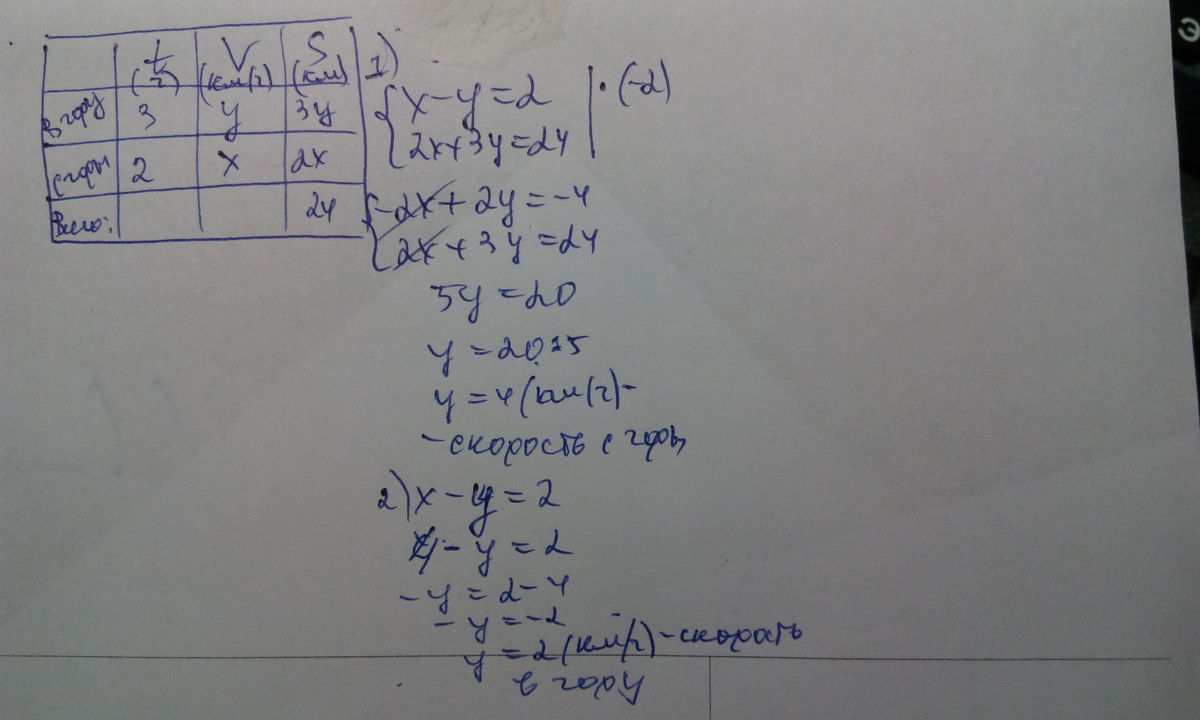 t (ч) V (км/ч) S (км)
в гору 3 y 3y
с горы 2 x 2x
Всего: 24
1)
x-y=2 | ·(-2)
2x+3y=24
-2x+2y=-4
2x+3y=24
5y=20
y=20:5
y=4(км/ч)-
-скорость с горы
2) x-y=2
4-y=2
-y=2-4
-y=-2
y=2(км/ч)-скорость
в гору